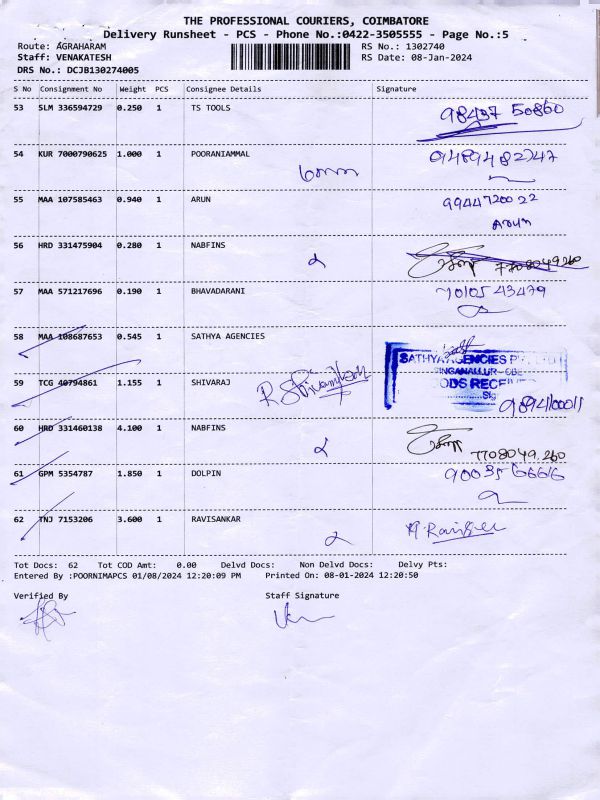 THE PROFESSIONAL COURIERS, COIMBATORE
Delivery Runsheet - PCS - Phone No.:0422-3505555 - Page No.:5
Route: AGRAHARAM RS No.: 1302740
Staff: VENAKATESH RS Date: 08-Jan-2024
DRS No.: DCJB130274005
S No Consignment No Weight PCS Consignee Details Signature
53 SLM 336594729 0.250 1 TS TOOLS 98437 50860
54 KUR 7000790625 1.000 1 POORANIAMMAL 9489482747
55 MAA 107585463 0.940 1 ARUN 9944720022
Arun
56 HRD 331475904 0.280 1 NABFINS 7708049260
57 MAA 571217696 0.190 1 BHAVADARANI 43479
58 MAA 108687653 0.545 1 SATHYA AGENCIES
SATHYA AGENCIES
SINGANALLUR
59 TCG 40794861 1.155 1 SHIVARAJ
60 HRD 331460138 4.100 1 NABFINS
7708049.260
61 GPM 5354787 1.850 1 DOLPIN 9003566616
62 TNJ 7153206 3.600 1 RAVISANKAR
Tot Docs: 62 Tot COD Amt: 0.00 Delvd Docs: Non Delvd Docs: Delvy Pts:
Entered By :POORNIMAPCS 01/08/2024 12:20:09 PM Printed On: 08-01-2024 12:20:50
Verified By Staff Signature